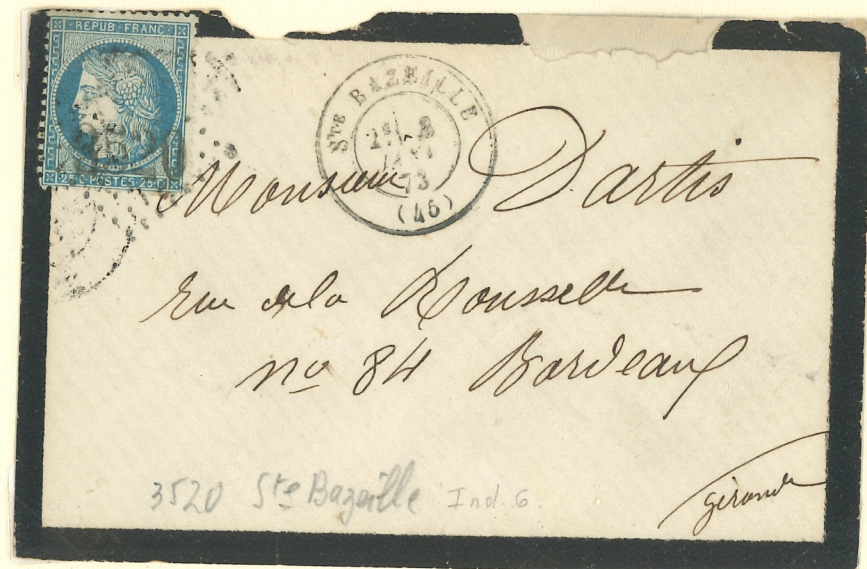 REPUB · FRANC
25 C · POSTES · 25 C
STE BAZEILLE
JANV
73
(46)
Monsieur Dartis
rue de la Rousselle
no 84 Bordeaux
Gironde
3520 Ste Bazeille Ind. 6.